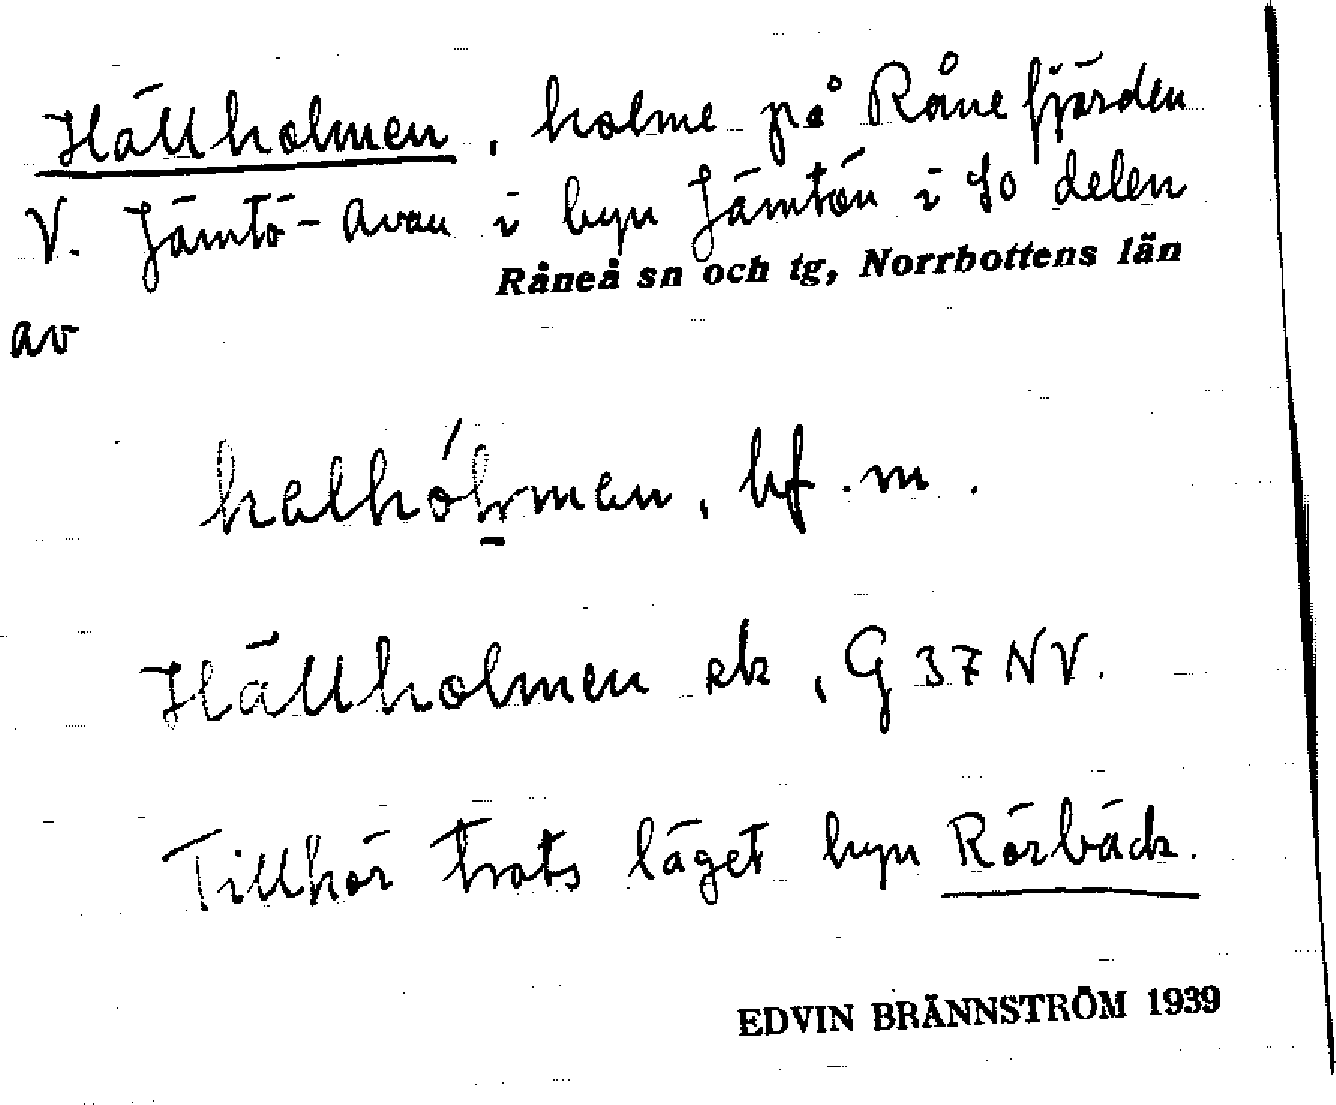 Hällholmen, holme på Rånefjärden
V. Jämtö-Avan i byn Jämtön i SO delen
Råneå sn och tg, Norrbottens län
av
hf. m.
Hällholmen ek, G 37 NV.
Tillhör trots läget byn Rörbäck.
EDVIN BRÄNNSTRÖM 1939